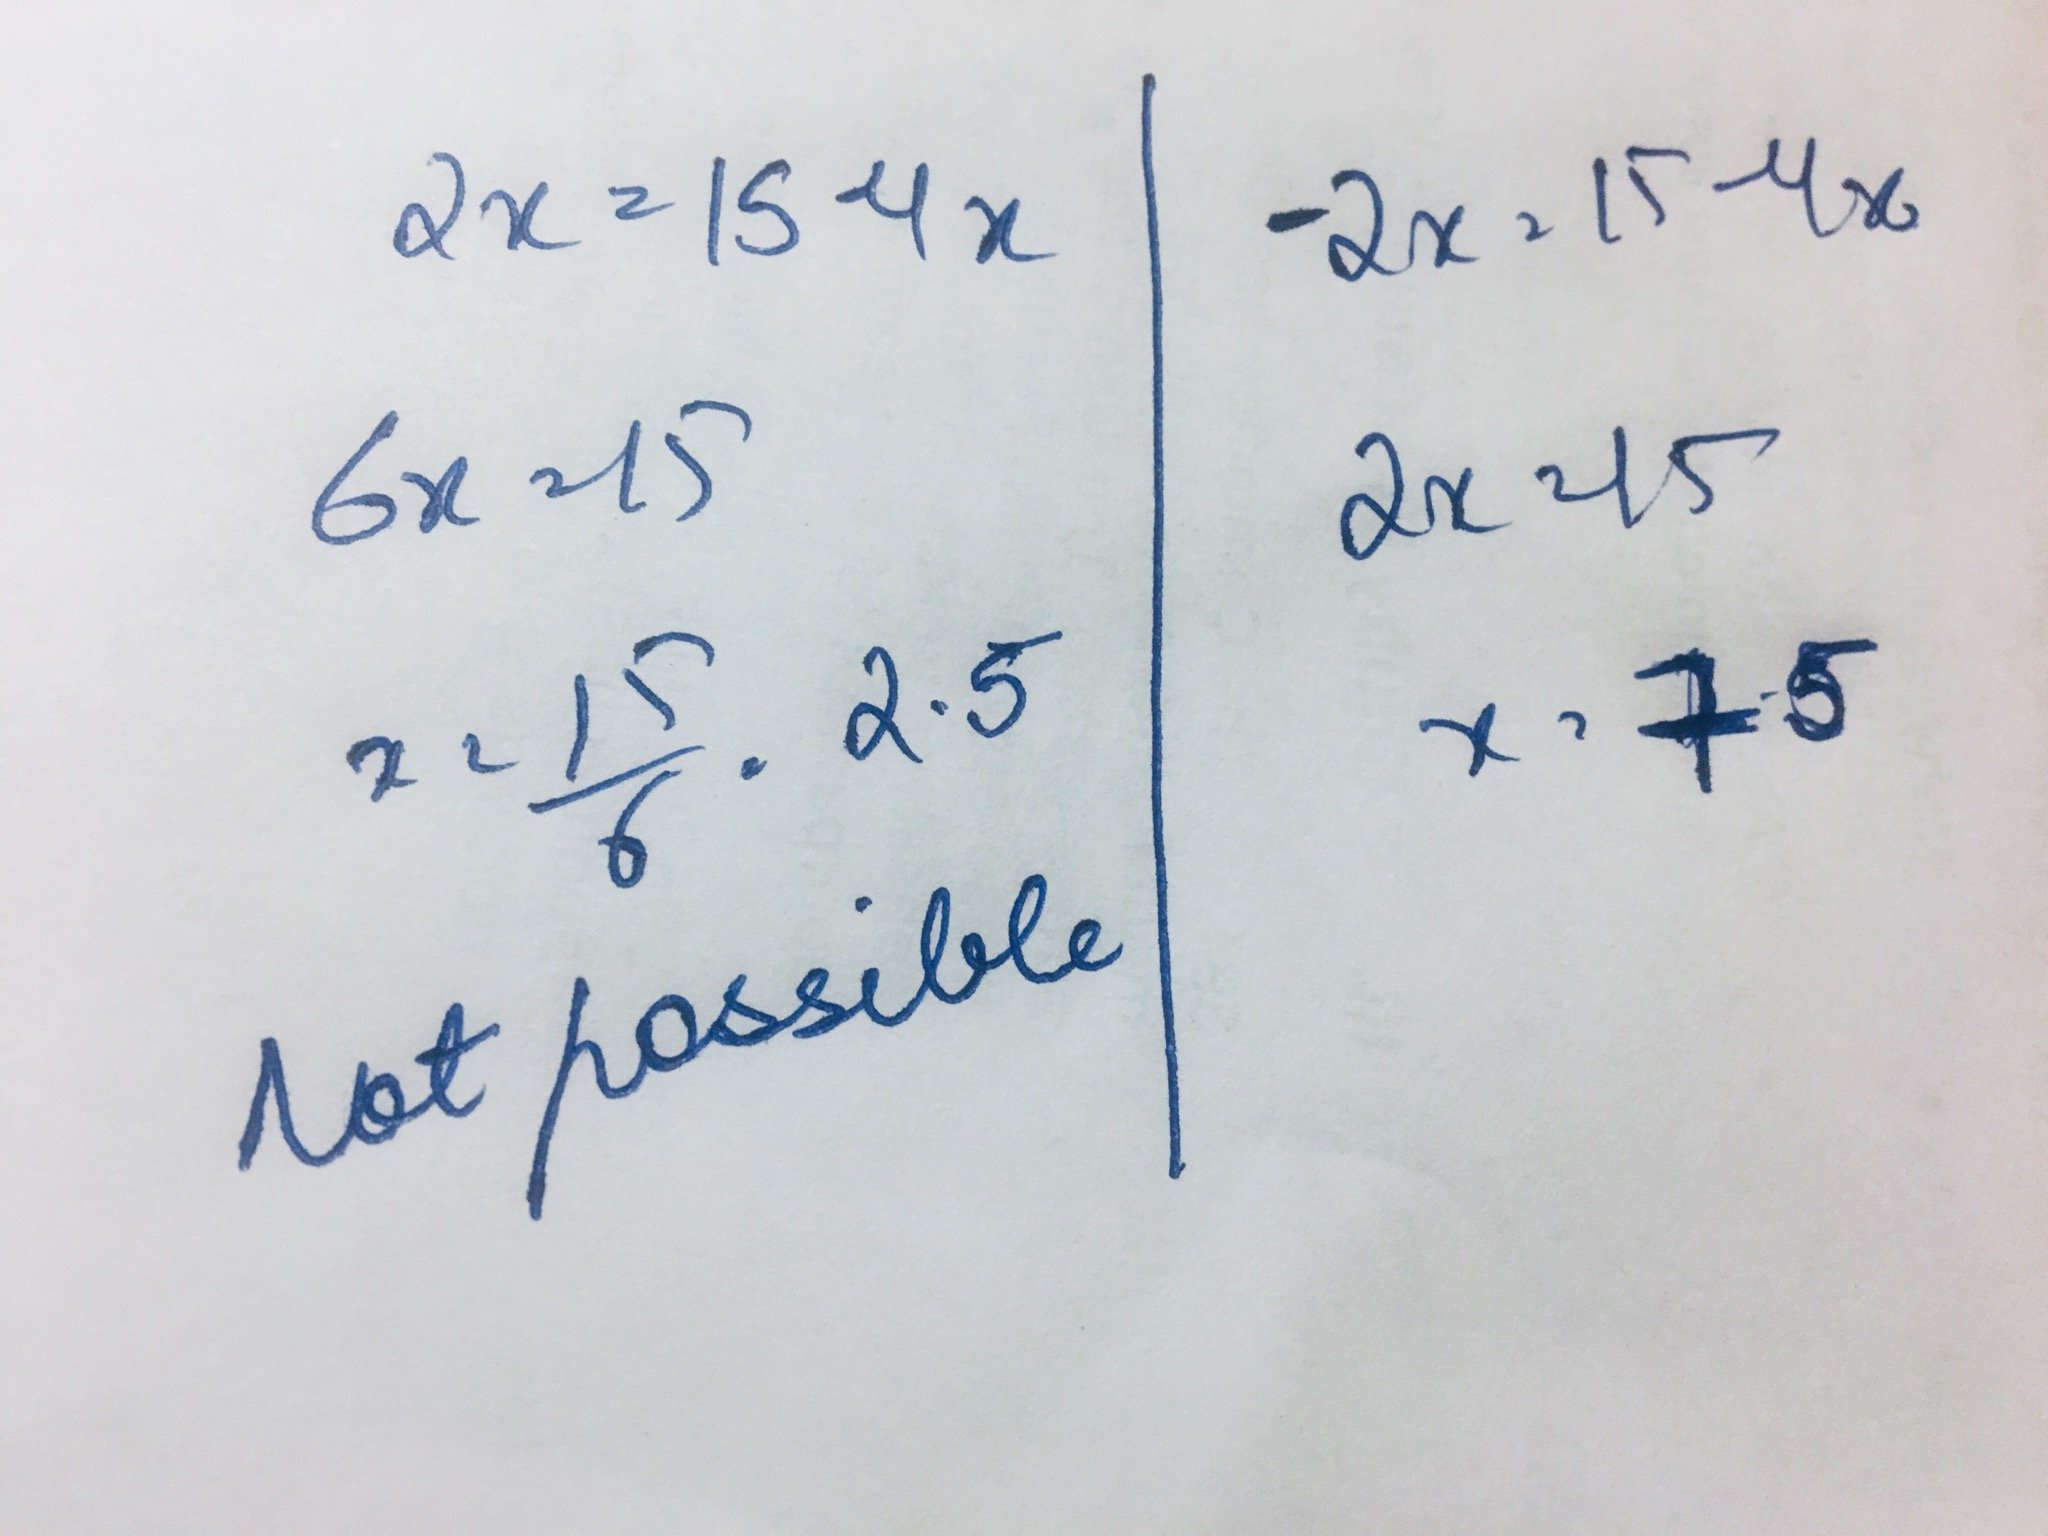 2x = 15 - 4x
6x = 15
x = 15/6 = 2.5
Not possible
-2x = 15 - 4x
2x = 15
x = 7.5